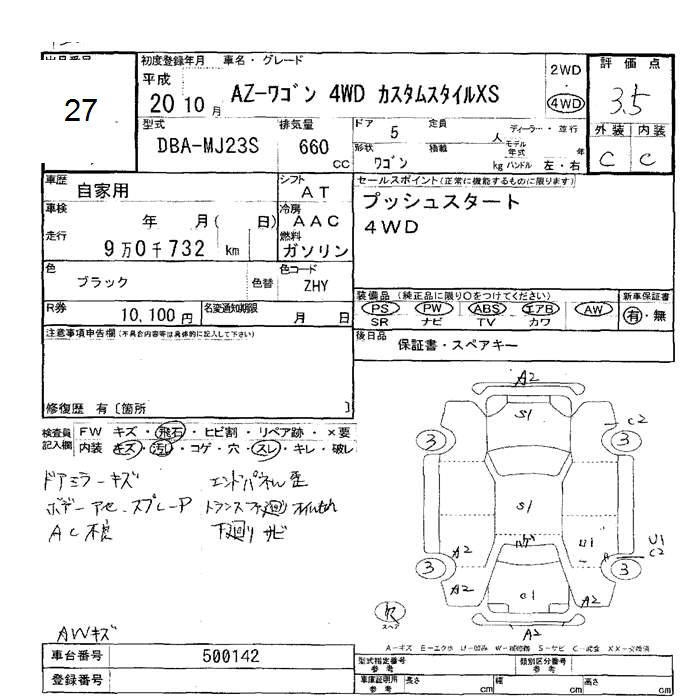 27
初度登録年月 車名・グレード
平成
20 10月 AZ-ワゴン 4WD カスタムスタイルXS
2WD
4WD
評価点
3.5
外装 内装
C C
型式 排気量 ドア 定員 ディーラー・並行
DBA-MJ23S 660 CC 5 人
形状 積載 モデル年式 年
ワゴン kg ハンドル 左・右
車歴 自家用 シフト AT
セールスポイント(正常に機能するものに限ります)
プッシュスタート
4WD
車検 年 月( 日) 冷房 AAC
走行 9万0千732 km 燃料 ガソリン
色 ブラック 色替 色コード ZHY
R券 10,100円 名変通知期限 月 日
装備品 (純正品に限り○をつけてください) 新車保証書
PS PW ABS エアB AW 有・無
SR ナビ TV カワ
注意事項申告欄(不具合内容等は具体的に記入して下さい)
後日品 保証書・スペアキー
修復歴 有〔箇所 〕
検査員記入欄 FW キズ・飛石・ヒビ割・リペア跡・×要
内装 キズ・汚レ・コゲ・穴・スレ・キレ・破レ
ドアミラーキズ エンドパネル歪
AC不良 下廻りサビ
AWキズ
A2
S1
C2
3 3
S1
U1 U1
C2
A2 A
3 3
A2 A2
C1
A2
スペア
車台番号 500142
登録番号
型式指定番号 参考 類別区分番号 参考
車庫証明用 参考 長さ cm 幅 cm 高さ cm